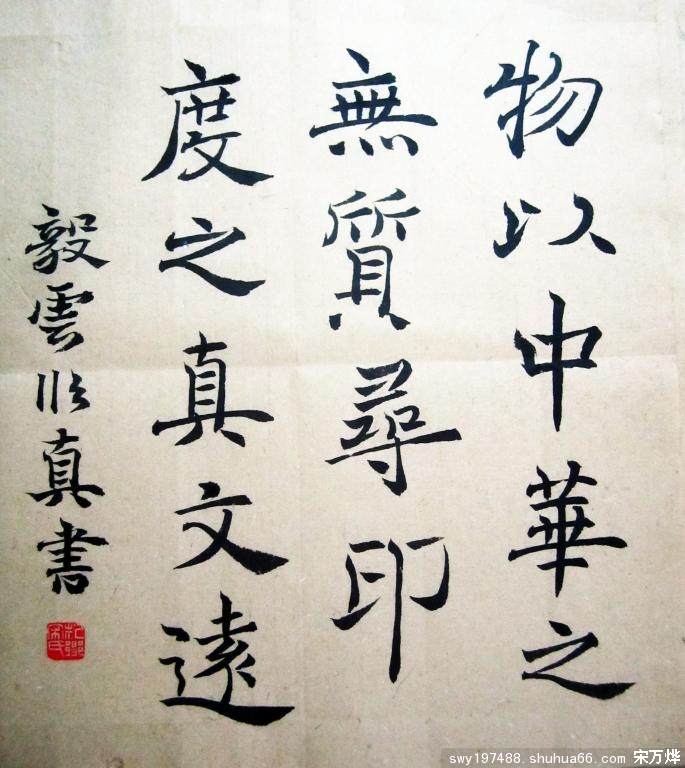 物以中華之
無質尋印
度之真文遠
毅雲臨真書
swy197488.shuhua66.com 宋万烨